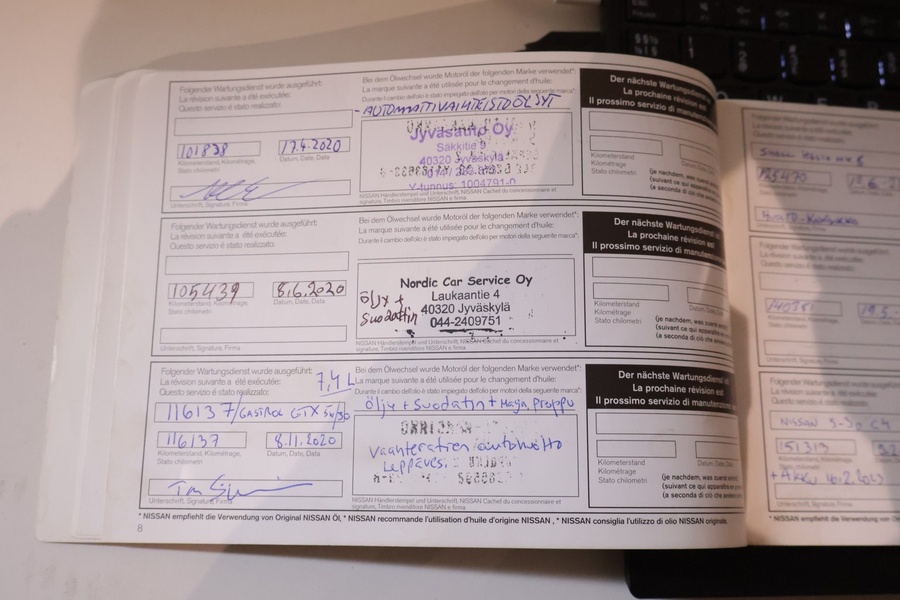 Folgender Wartungsdienst wurde ausgeführt:
La révision suivante a été exécutée:
Questo servizio è stato realizzato:
101838
17.4.2020
Kilometerstand, Kilométrage,
Stato chilometri
Datum, Date, Data
Unterschrift, Signature, Firma
Bei dem Ölwechsel wurde Motoröl der folgenden Marke verwendet*:
La marque suivante a été utilisée pour le changement d'huile:
Durante il cambio dell'olio è stato impiegato dell'olio per motori della seguente marca*:
- AUTOMAATTIVAIHTEISTOÖLJYT
Jyväsauto Oy
Säkkitie 9
40320 Jyväskylä
Y-tunnus: 1004791-0
NISSAN Händlerstempel und Unterschrift, NISSAN Cachet du concessionnaire et
signature, Timbro rivenditore NISSAN e firma
Der nächste Wartungsdienst
La prochaine révision est
Il prossimo servizio di
Kilometerstand
Kilométrage
Stato chilometri
(je nachdem, was
(suivant ce qui
(a seconda di ciò
Folgender Wartungsdienst wurde ausgeführt:
La révision suivante a été exécutée:
Questo servizio è stato realizzato:
105439
8.6.2020
Kilometerstand, Kilométrage,
Stato chilometri
Datum, Date, Data
Unterschrift, Signature, Firma
Bei dem Ölwechsel wurde Motoröl der folgenden Marke verwendet*:
La marque suivante a été utilisée pour le changement d'huile:
Durante il cambio dell'olio è stato impiegato dell'olio per motori della seguente marca*:
Nordic Car Service Oy
Laukaantie 4
40320 Jyväskylä
044-2409751
öljy +
suodatin
NISSAN Händlerstempel und Unterschrift, NISSAN Cachet du concessionnaire et
signature, Timbro rivenditore NISSAN e firma
Der nächste Wartungsdienst ist
La prochaine révision est
Il prossimo servizio di
Kilometerstand
Kilométrage
Stato chilometri
(je nachdem, was zuerst
(suivant ce qui
(a seconda di ciò che
Folgender Wartungsdienst wurde ausgeführt:
La révision suivante a été exécutée:
Questo servizio è stato realizzato:
7,4 L
116137/CASTROL GTX 5W30
116137
8.11.2020
Kilometerstand, Kilométrage,
Stato chilometri
Datum, Date, Data
Unterschrift, Signature, Firma
Bei dem Ölwechsel wurde Motoröl der folgenden Marke verwendet*:
La marque suivante a été utilisée pour le changement d'huile:
Durante il cambio dell'olio è stato impiegato dell'olio per motori della seguente marca*:
öljy + Suodatin + Magn. proppu
Vaahteratien autohuolto
Leppävesi.
NISSAN Händlerstempel und Unterschrift, NISSAN Cachet du concessionnaire et
signature, Timbro rivenditore NISSAN e firma
Der nächste Wartungsdienst ist
La prochaine révision est
Il prossimo servizio di
Kilometerstand
Kilométrage
Stato chilometri
(je nachdem, was zuerst
(suivant ce qui
(a seconda di ciò che
* NISSAN empfiehlt die Verwendung von Original NISSAN Öl, * NISSAN recommande l'utilisation d'huile d'origine NISSAN , * NISSAN consiglia l'utilizzo di olio NISSAN originale.
8
125470
Huolto-
140351
19.5.
NISSAN 5-30 C4
151313
+ Akku 16.2.2023
* NISSAN empfiehlt die Verwendung von